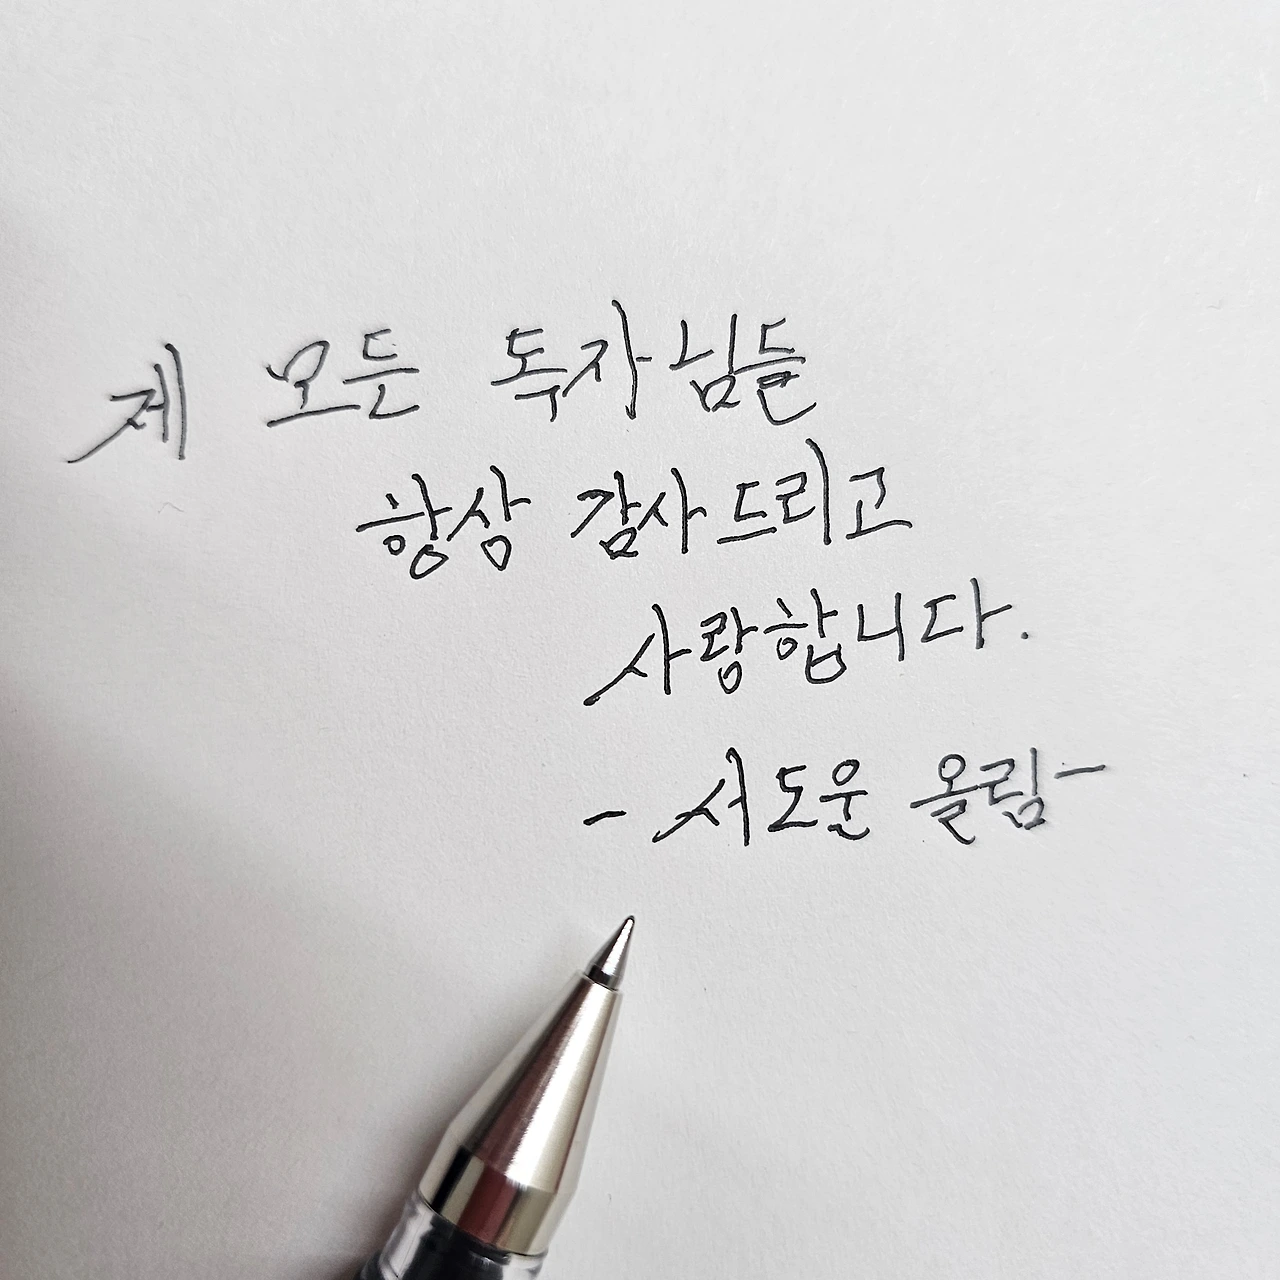 제 모든 독자님들
항상 감사드리고
사랑합니다.
- 서도운 올림 -